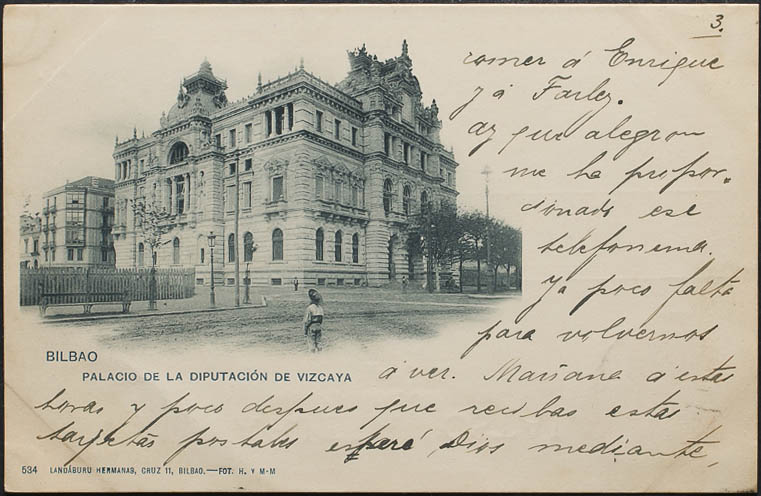 3.
comer á Enrique
y á Farley.
ay que alegron
me ha propor-
cionado ese
telefonema.
Ya poco falta
para volvernos
á ver. Mañana á estas
horas y poco despues que recibas estas
tarjetas postales esperé Dios mediante,
BILBAO
PALACIO DE LA DIPUTACIÓN DE VIZCAYA
534 LANDÁBURU HERMANAS, CRUZ 11, BILBAO.—FOT. H. Y M-M